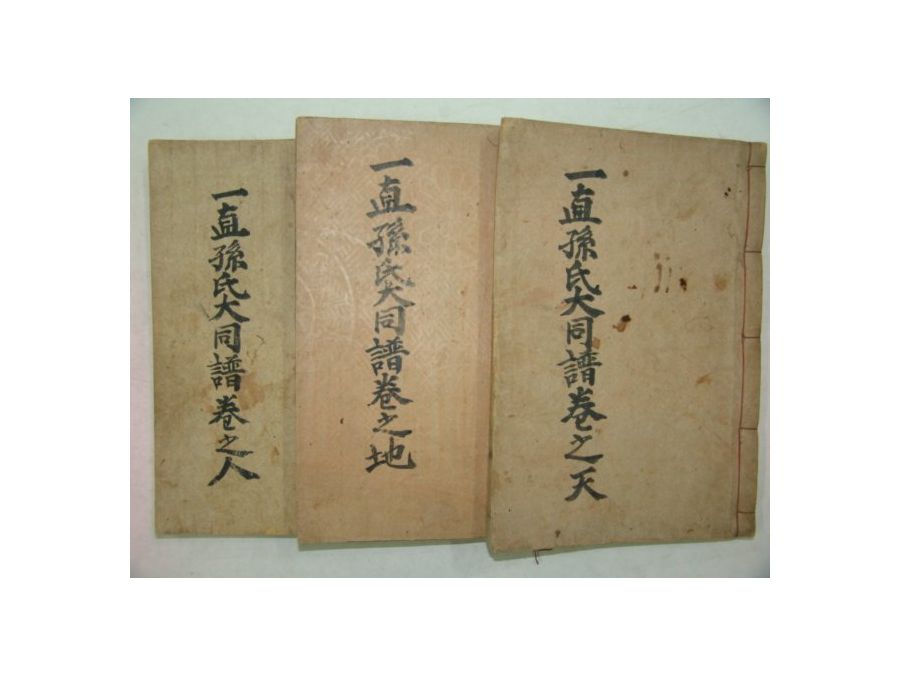 一直孫氏大同譜卷之天
一直孫氏大同譜卷之地
一直孫氏大同譜卷之人